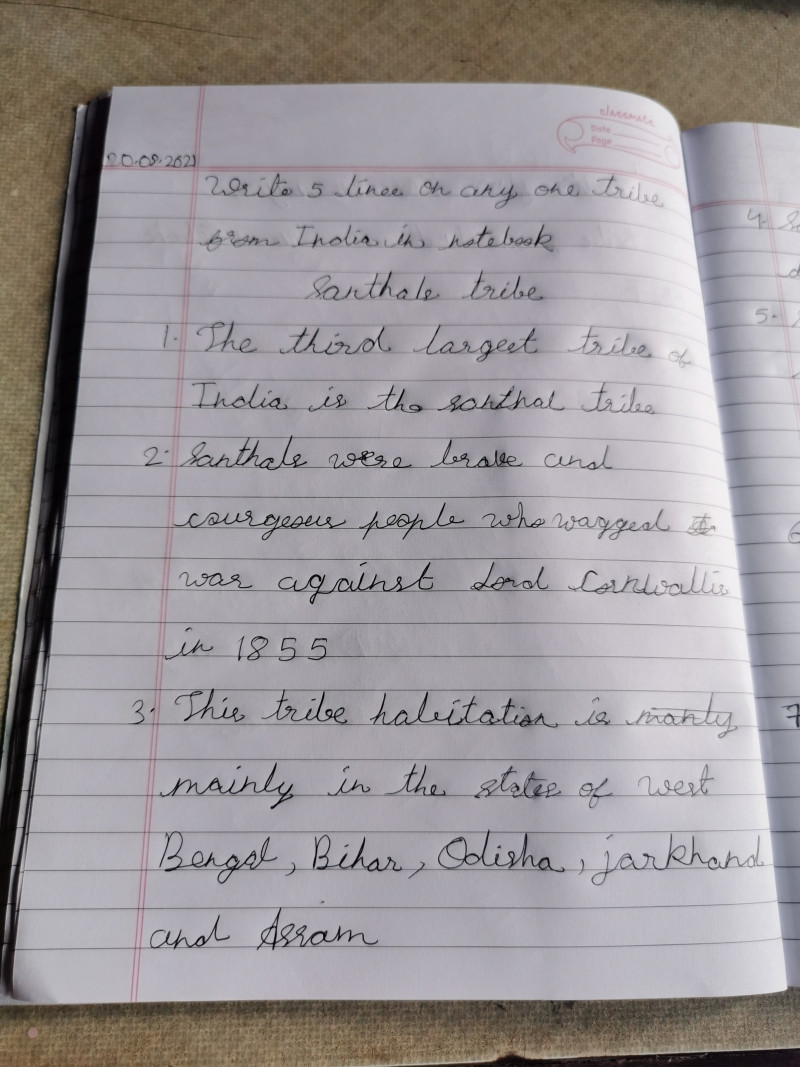 classmate
Date
Page
20.08.2021
Write 5 lines on any one tribe
from India in notebook
Santhals tribe
1. The third largest tribe of
India is the santhal tribe
2. Santhals were brave and
courgeous people who wagged
war against Lord Cornwallis
in 1855
3. This tribe habitation is manly
mainly in the states of west
Bengal, Bihar, Odisha, jarkhand
and Assam
4.
5.
7